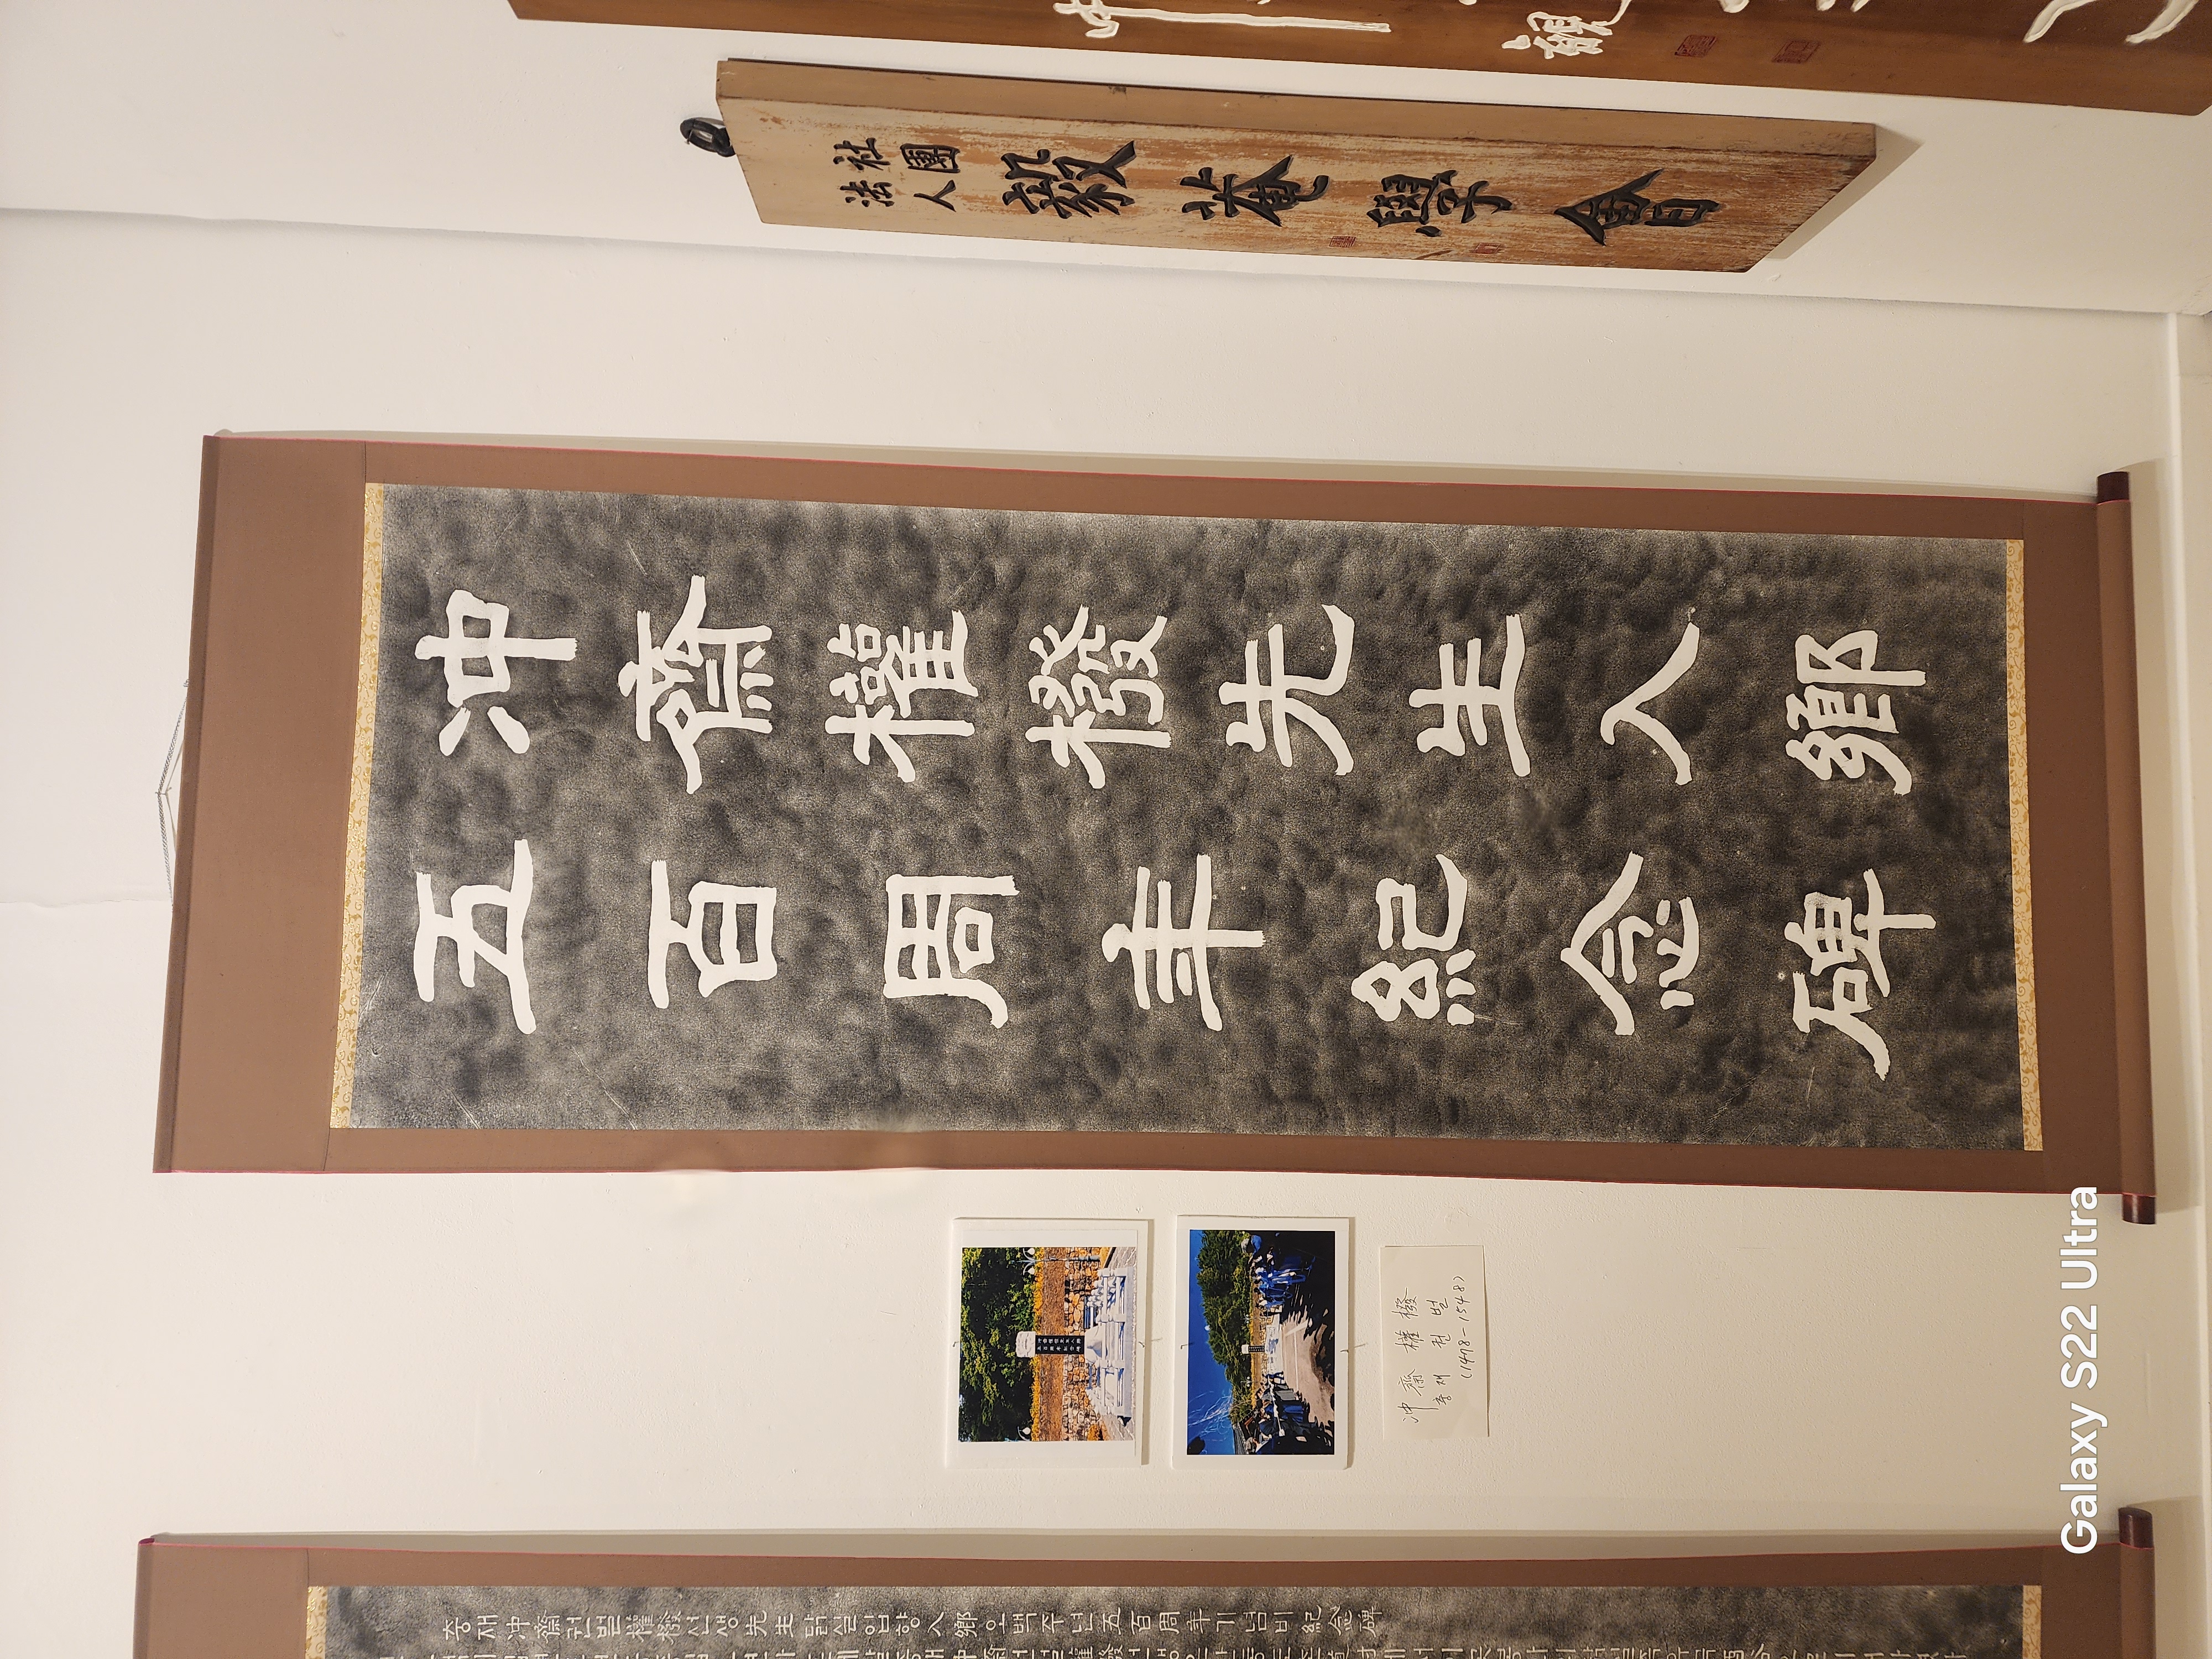 社團
法人
毅菴學會
冲齋權橃先生入鄕
五百周年紀念碑
冲齋 權橃
충재 권벌
(1478-1548)
충재冲齋권벌權橃선생先生닭실입향入鄕오백주년五百周年기념비紀念碑
Galaxy S22 Ultra